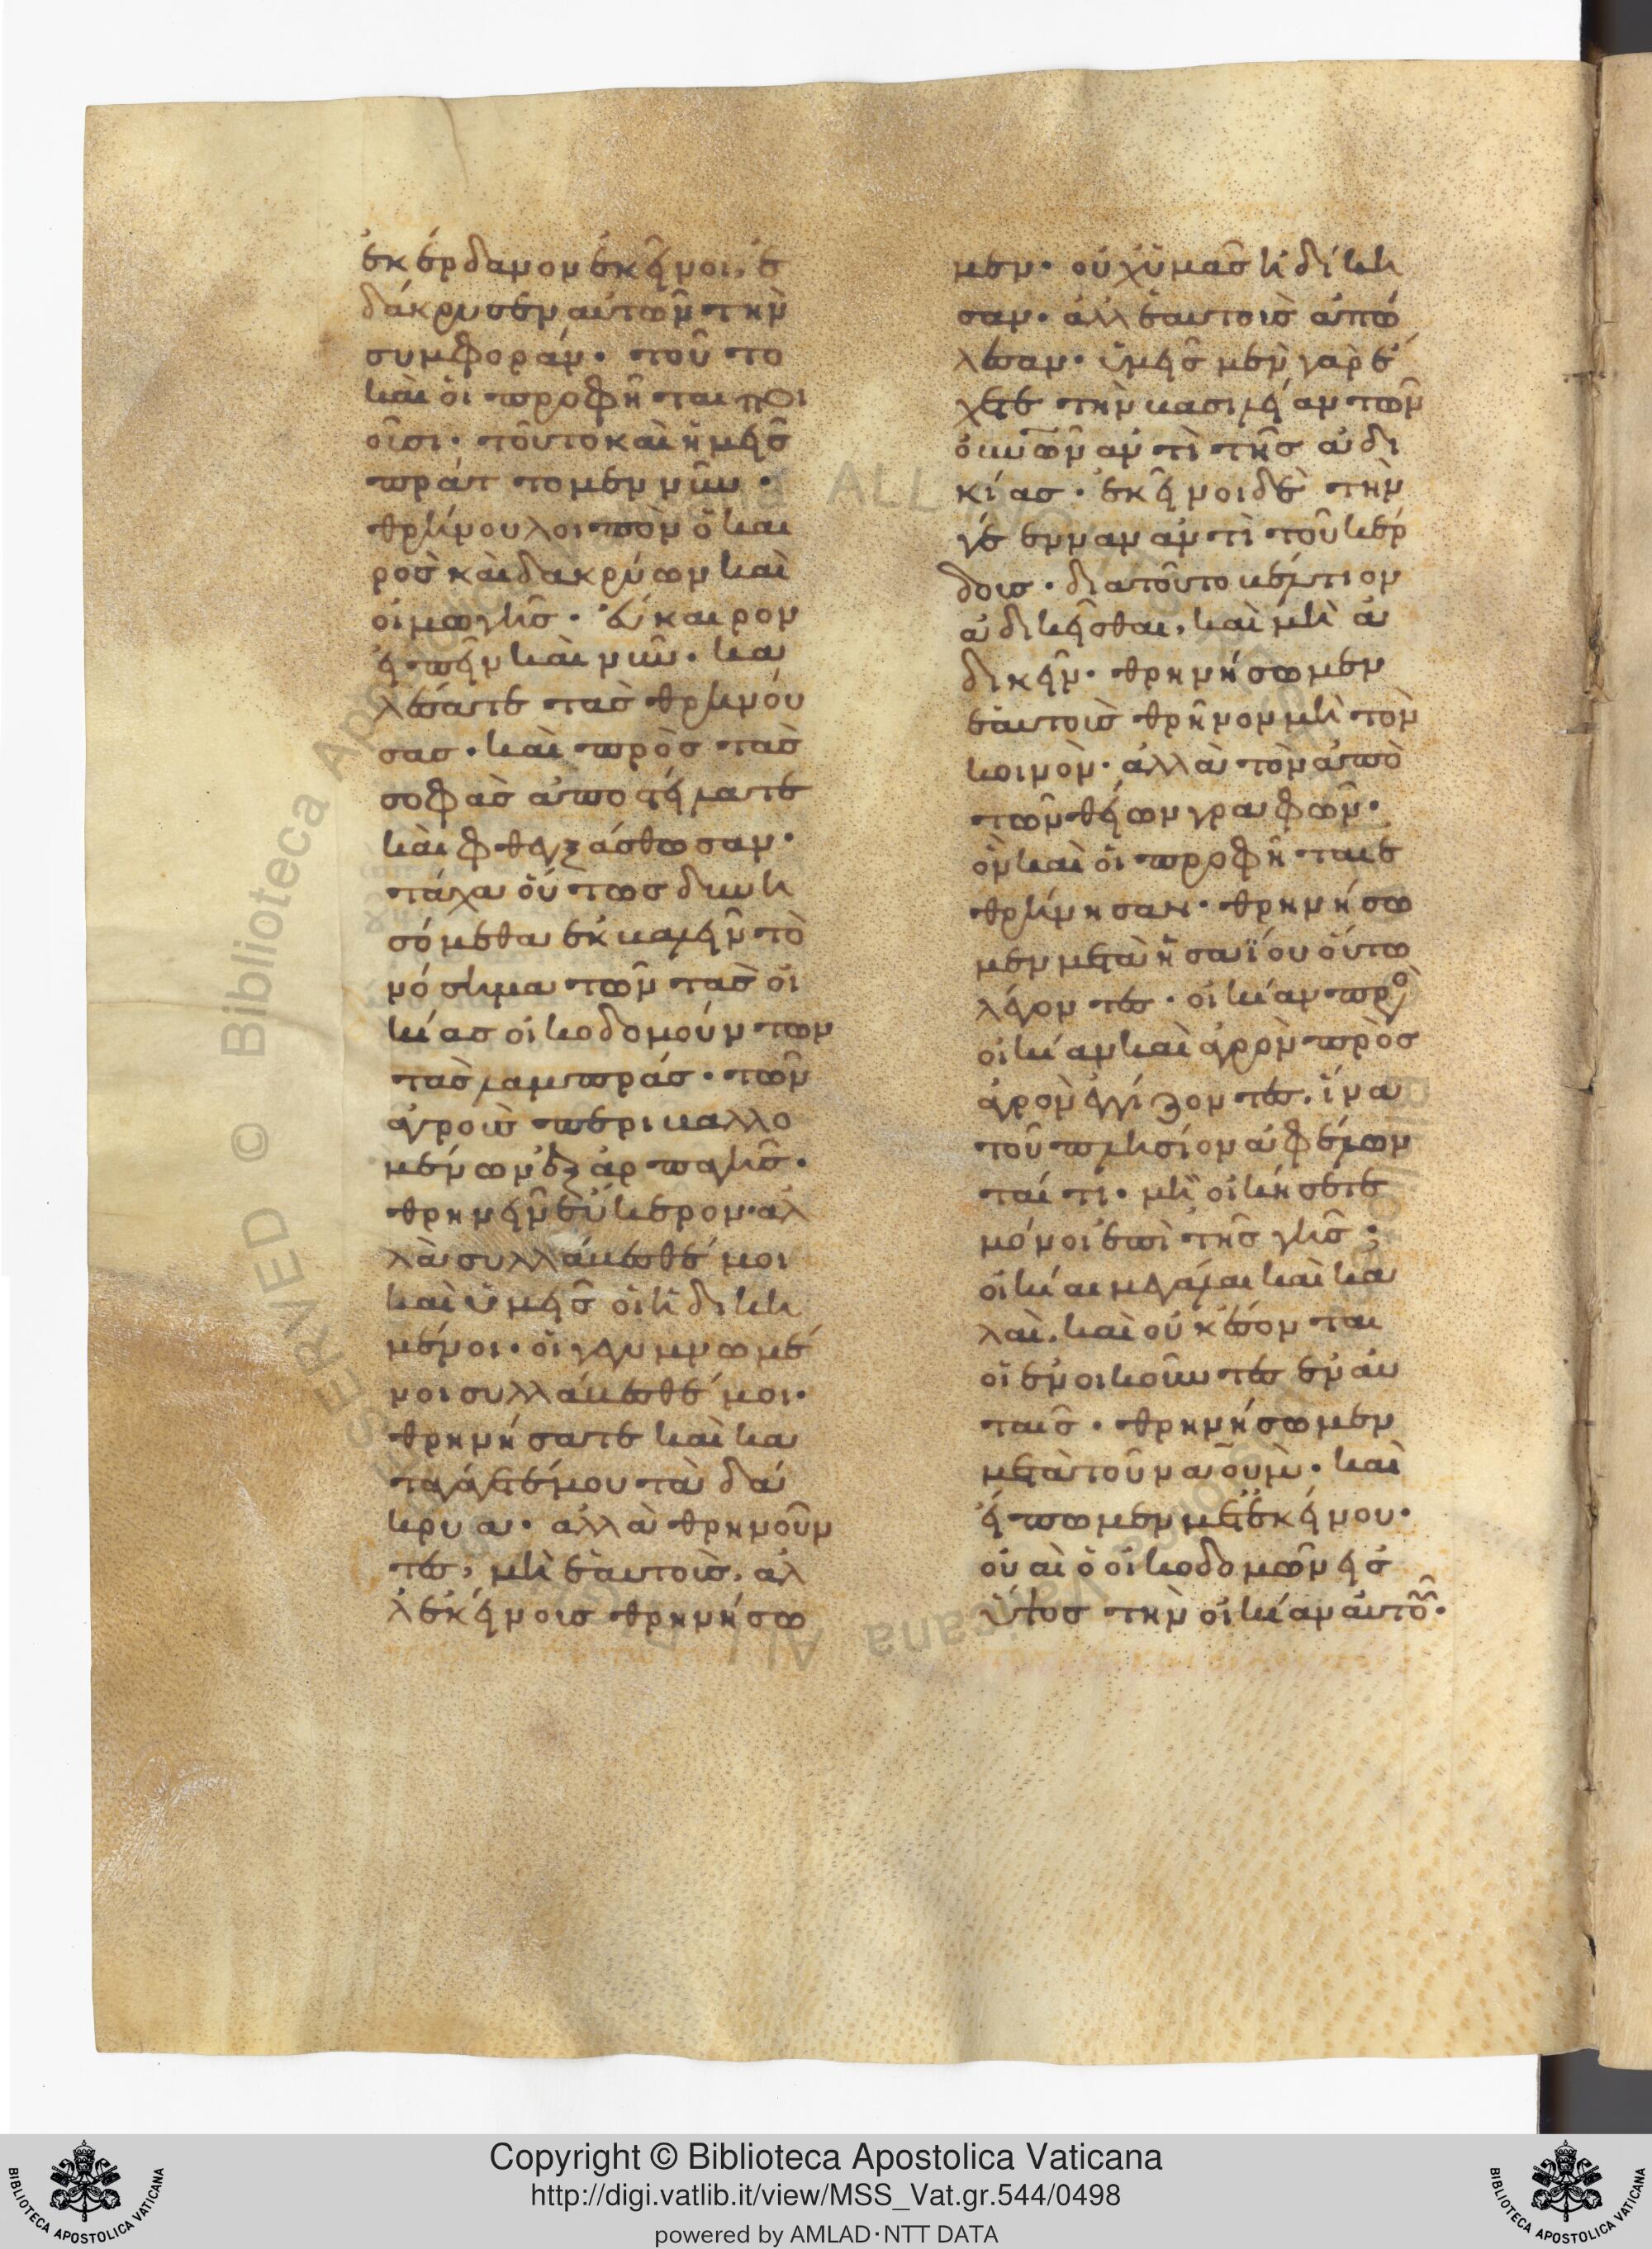 ἐκέρδανον ἐκεῖνοι, ἐ
δάκρυσεν αὐτῶν τὴν
συμφοράν· τοῦτο
καὶ οἱ προφῆται ποι
οῦσι· τοῦτο καὶ ἡμεῖς
πράττομεν νῦν·
θρήνου λοιπὸν ὁ και
ρὸς καὶ δακρύων καὶ
οἰμωγῆς· εὔκαιρον
εἰπεῖν καὶ νῦν· κα
λέσατε τὰς θρηνού
σας· καὶ πρὸς τὰς
σοφὰς ἀποστείλατε
καὶ φθεγξάσθωσαν·
τάχα οὕτως δυνη
σόμεθα ἐκβαλεῖν τὸ
νόσημα τῶν τὰς οἰ
κίας οἰκοδομούντων
τὰς λαμπράς· τῶν
ἀγροῖς περιβαλλο
μένων ἐξ ἁρπαγῆς·
θρηνεῖν εὔκερον· ἀλ
λὰ συλλάβεσθέ μοι
καὶ ὑμεῖς οἱ ἠδικη
μένοι· οἱ γεγυμνωμέ
νοι συλλάβεσθέ μοι·
θρηνήσατε καὶ κα
ταγάγετέ μου τὰ δά
κρυα· ἀλλὰ θρηνοῦν
τες, μὴ ἑαυτοὺς, ἀλ
λ' ἐκείνους θρηνήσω
μεν· οὐχ ὑμᾶς ἠδίκη
σαν· ἀλλ' ἑαυτοὺς ἀπώ
λεσαν· ὑμεῖς μὲν γὰρ ἔ
χετε τὴν βασιλείαν τῶν
οὐνῶν ἀντὶ τῆς ἀδι
κίας· ἐκεῖνοι δὲ τὴν
γέενναν ἀντὶ τοῦ κέρ
δους· διατοῦτο βέλτιον
ἀδικεῖσθαι, καὶ μὴ ἀ
δικεῖν· θρηνήσωμεν
ἑαυτοὺς θρῆνον μὴ τὸν
κοινὸν· ἀλλὰ τὸν ἀπὸ
τῶν θείων γραφῶν·
ὃν καὶ οἱ προφῆται ἐ
θρήνησαν· θρηνήσω
μεν μετὰ ἠσαΐου οὕτω
λέγοντες· οἰκίαν πρὸ
οἰκίαν καὶ ἀγρὸν πρὸς
ἀγρὸν ἐγγίζοντες, ἵνα
τοῦ πλησίον ἀφέλων
ταί τι· μὴ οἰκήσετε
μόνοι ἐπὶ τῆς γῆς·
οἰκίαι μεγάλαι καὶ κα
λαὶ, καὶ οὐκ ἔσονται
οἱ ἐνοικοῦντες ἐν αὐ
ταῖς· θρηνήσωμεν
μετὰ τοῦ ναοῦμ· καὶ
εἴπωμεν μετ' ἐκείνου·
οὐαὶ ὁ οἰκοδομῶν εἰς
ὕψος τὴν οἰκίαν αὐτοῦ·
Copyright © Biblioteca Apostolica Vaticana
http://digi.vatlib.it/view/MSS_Vat.gr.544/0498
powered by AMLAD·NTT DATA
BIBLIOTECA APOSTOLICA VATICANA
BIBLIOTECA APOSTOLICA VATICANA